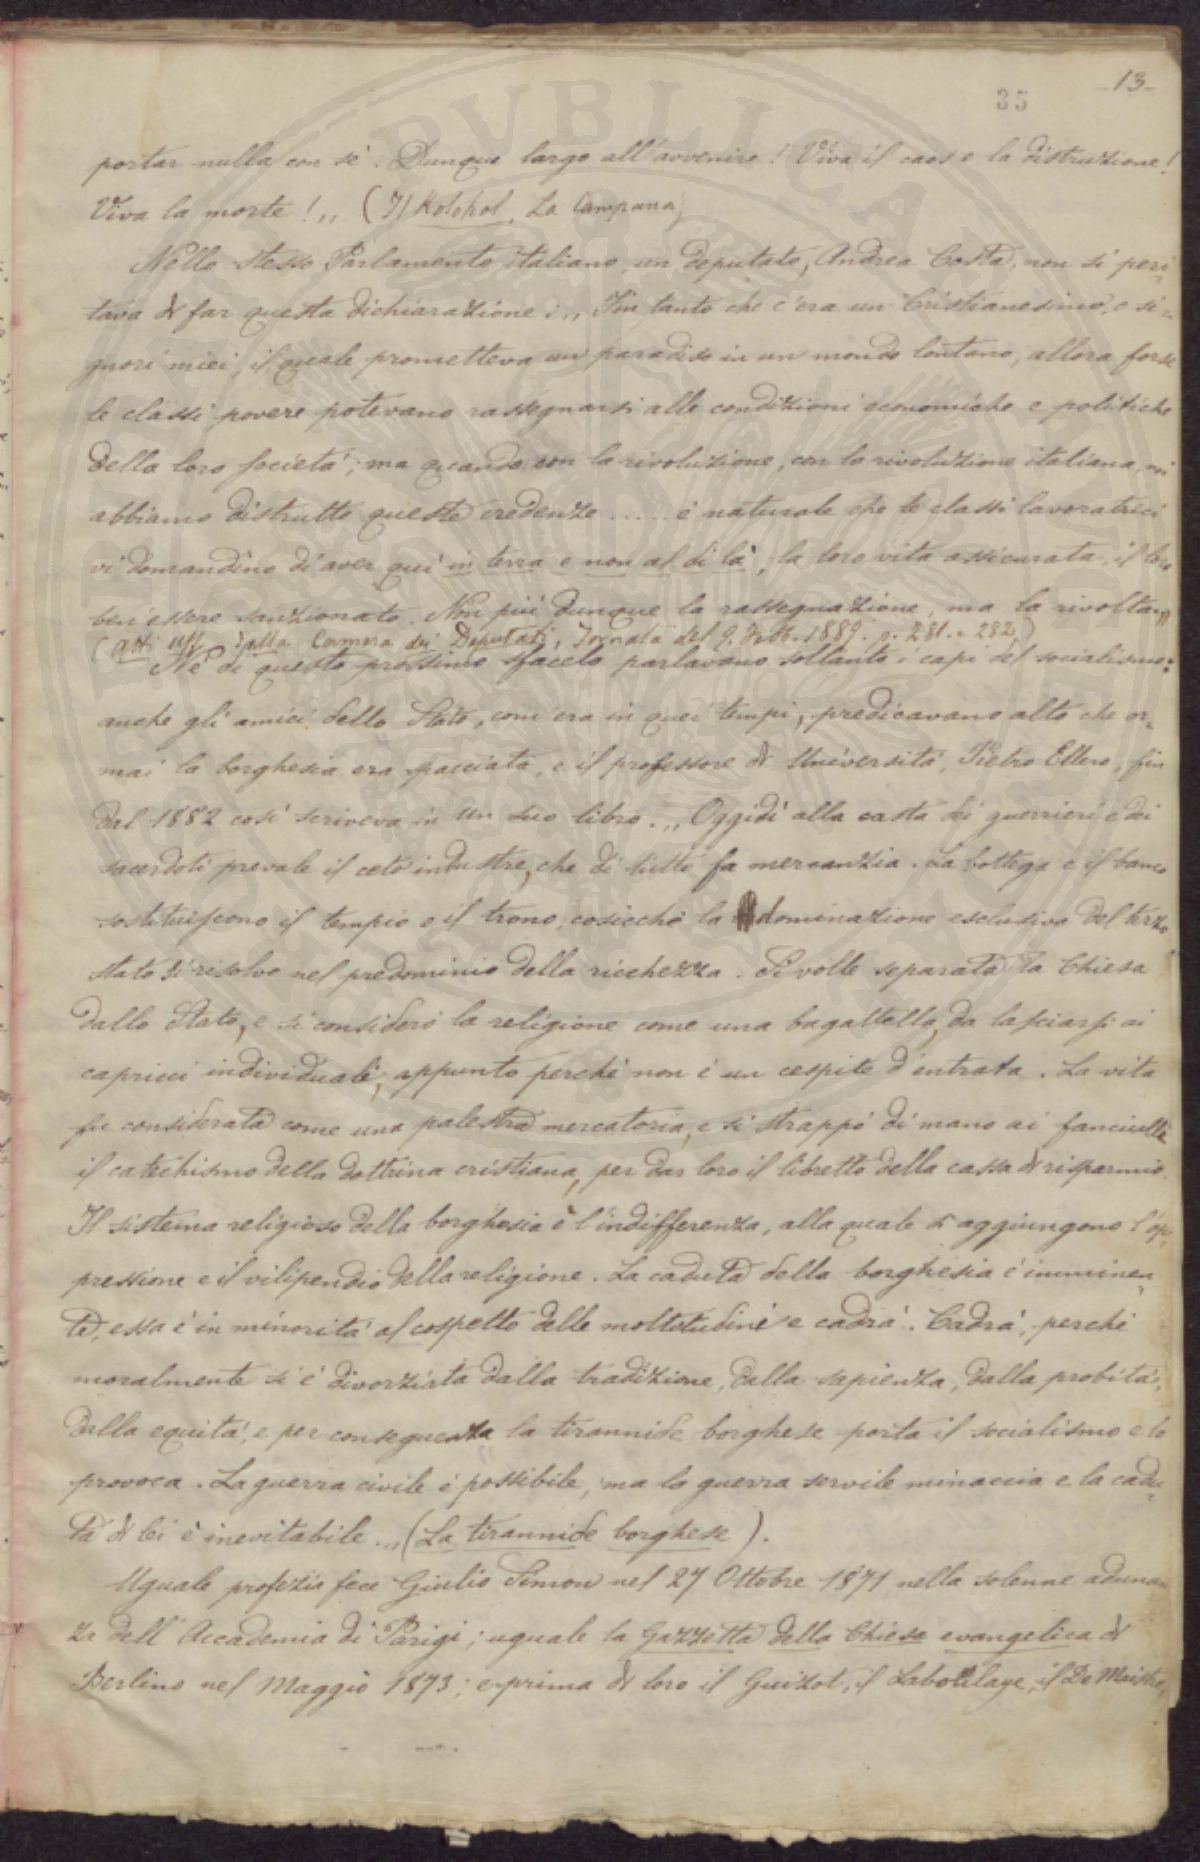 -13-
35
portar nulla con sè. Dunque largo all'avvenire! Viva il caos e la distruzione!
Viva la morte!,, (Il Kolokol, La Campana)
Nello stesso Parlamento italiano un deputato, Andrea Costa, non si peri-
tava di far questa dichiarazione: ,, Fin tanto che c'era un Cristianesimo, o si-
gnori miei, il quale prometteva un paradiso in un mondo lontano, allora forse
le classi povere potevano rassegnarsi alle condizioni economiche e politiche
della loro società; ma quando con la rivoluzione, con la rivoluzione italiana, voi
abbiamo distrutte queste credenze ..... è naturale che le classi lavoratrici
vi domandino di aver qui in terra e non al di là, la loro vita assicurata, il loro
ben'essere sanzionato. Non più dunque la rassegnazione, ma la rivolta,,
(Atti Uff. della Camera dei Deputati, Tornata del 9. Febb. 1889. p. 281. e 282.)
Nè di questo prossimo sfacelo parlavano soltanto i capi del socialismo:
anche gli amici dello Stato, com'era in quei tempi, predicavano alto che or-
mai la borghesia era spacciata, e il professore di Università, Pietro Ellero, fin
dal 1882 così scriveva in un suo libro. ,, Oggidì alla casta dei guerrieri e dei
sacerdoti prevale il ceto industre, che di tutto fa mercanzia. La bottega e il banco
sostituiscono il tempio e il trono, cosicchè la dominazione esclusiva del terzo
stato si risolve nel predominio della ricchezza. Si volle separata la Chiesa
dallo Stato, e si considerò la religione come una bagattella, da lasciarsi ai
capricci individuali, appunto perchè non è un cespite d'entrata. La vita
fu considerata come una palestra mercatoria, e si strappò di mano ai fanciulli
il catechismo della dottrina cristiana, per dar loro il libretto della cassa di risparmio.
Il sistema religioso della borghesia è l'indifferenza, alla quale si aggiungono l'op-
pressione e il vilipendio della religione. La caduta della borghesia è imminen-
te, essa è in minorità al cospetto delle moltitudini e cadrà. Cadrà, perchè
moralmente si è divorziata dalla tradizione, dalla sapienza, dalla probità,
dalla equità, e per conseguenza la tirannide borghese porta il socialismo e lo
provoca. La guerra civile è possibile, ma la guerra servile minaccia e la cadu-
ta di lei è inevitabile.,, (La tirannide borghese).
Uguale profezia fece Giulio Simon nel 27 Ottobre 1871 nella solenne adunan
za dell'Accademia di Parigi; uguale la Gazzetta della Chiesa evangelica di
Berlino nel Maggio 1873; e prima di loro il Guizot, il Laboulaye, il De Maistre,